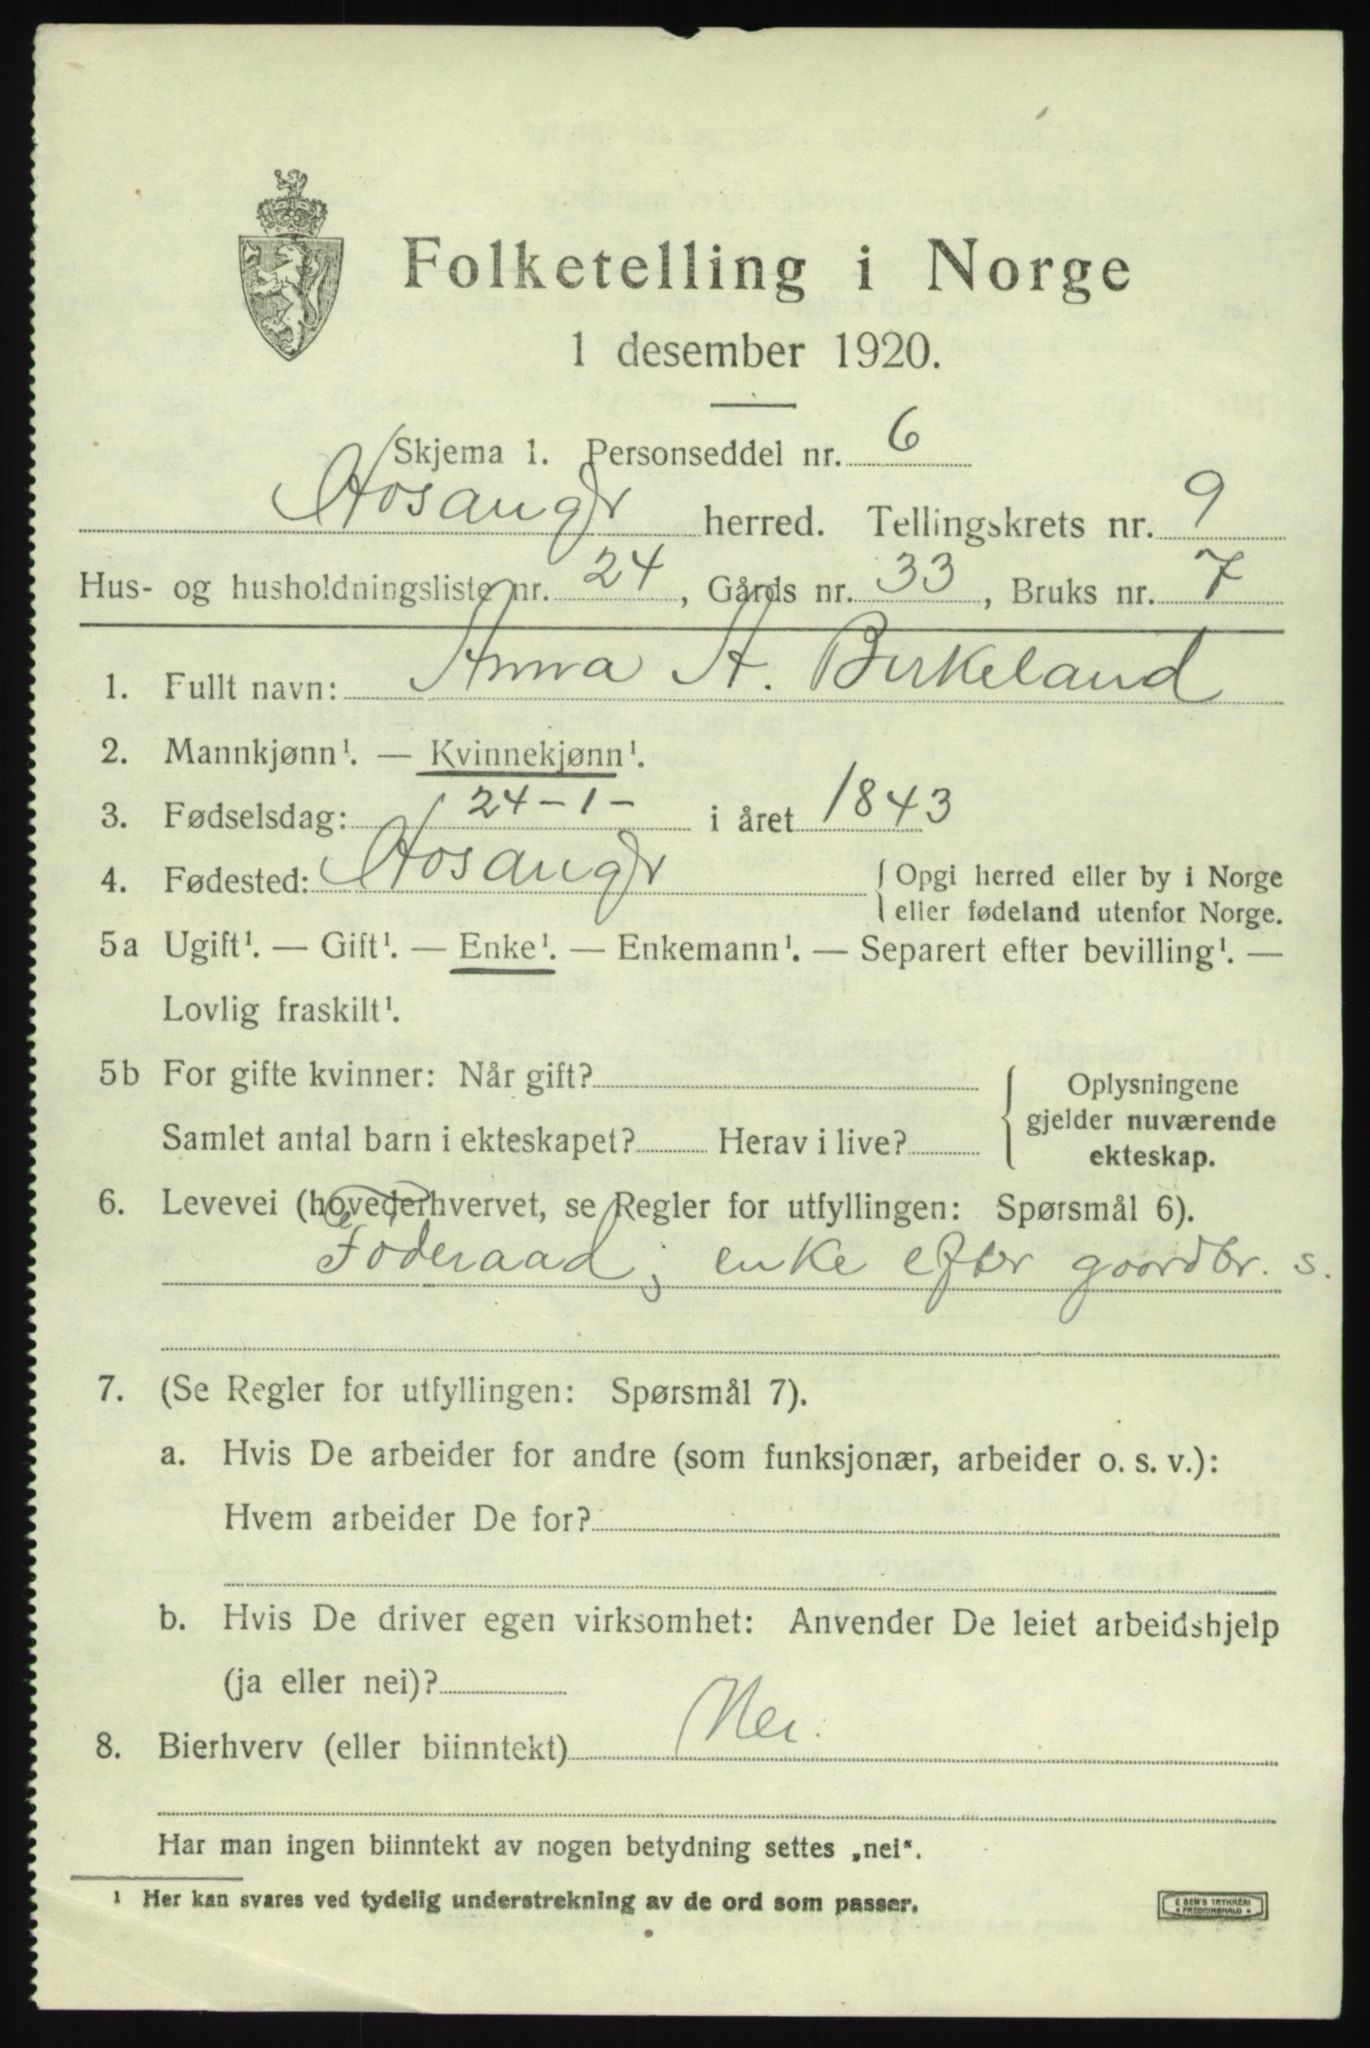 Folketelling i Norge
1 desember 1920.
Skjema 1. Personseddel nr. 6
Hosangr herred. Tellingskrets nr. 9
Hus- og husholdningsliste nr. 24, Gårds nr. 33, Bruks nr. 7
1. Fullt navn: Anna H. Birkeland
2. Mannkjønn¹. — Kvinnekjønn¹.
3. Fødselsdag: 24-1- i året 1843
4. Fødested: Hosangr { Opgi herred eller by i Norge
eller fødeland utenfor Norge.
5a Ugift¹. — Gift¹. — Enke¹. — Enkemann¹. — Separert efter bevilling¹. —
Lovlig fraskilt¹.
5b For gifte kvinner: Når gift?
Samlet antal barn i ekteskapet? Herav i live?
{ Oplysningene
gjelder nuværende
ekteskap.
6. Levevei (hovederhvervet, se Regler for utfyllingen: Spørsmål 6).
Føderaad, enke efter gaardbr. s.
7. (Se Regler for utfyllingen: Spørsmål 7).
a. Hvis De arbeider for andre (som funksjonær, arbeider o. s. v.):
Hvem arbeider De for?
b. Hvis De driver egen virksomhet: Anvender De leiet arbeidshjelp
(ja eller nei)?
8. Bierhverv (eller biinntekt) Nei.
Har man ingen biinntekt av nogen betydning settes „nei“.
¹ Her kan svares ved tydelig understrekning av de ord som passer.
E SEM'S TRYKKERI
FREDRIKSHALD